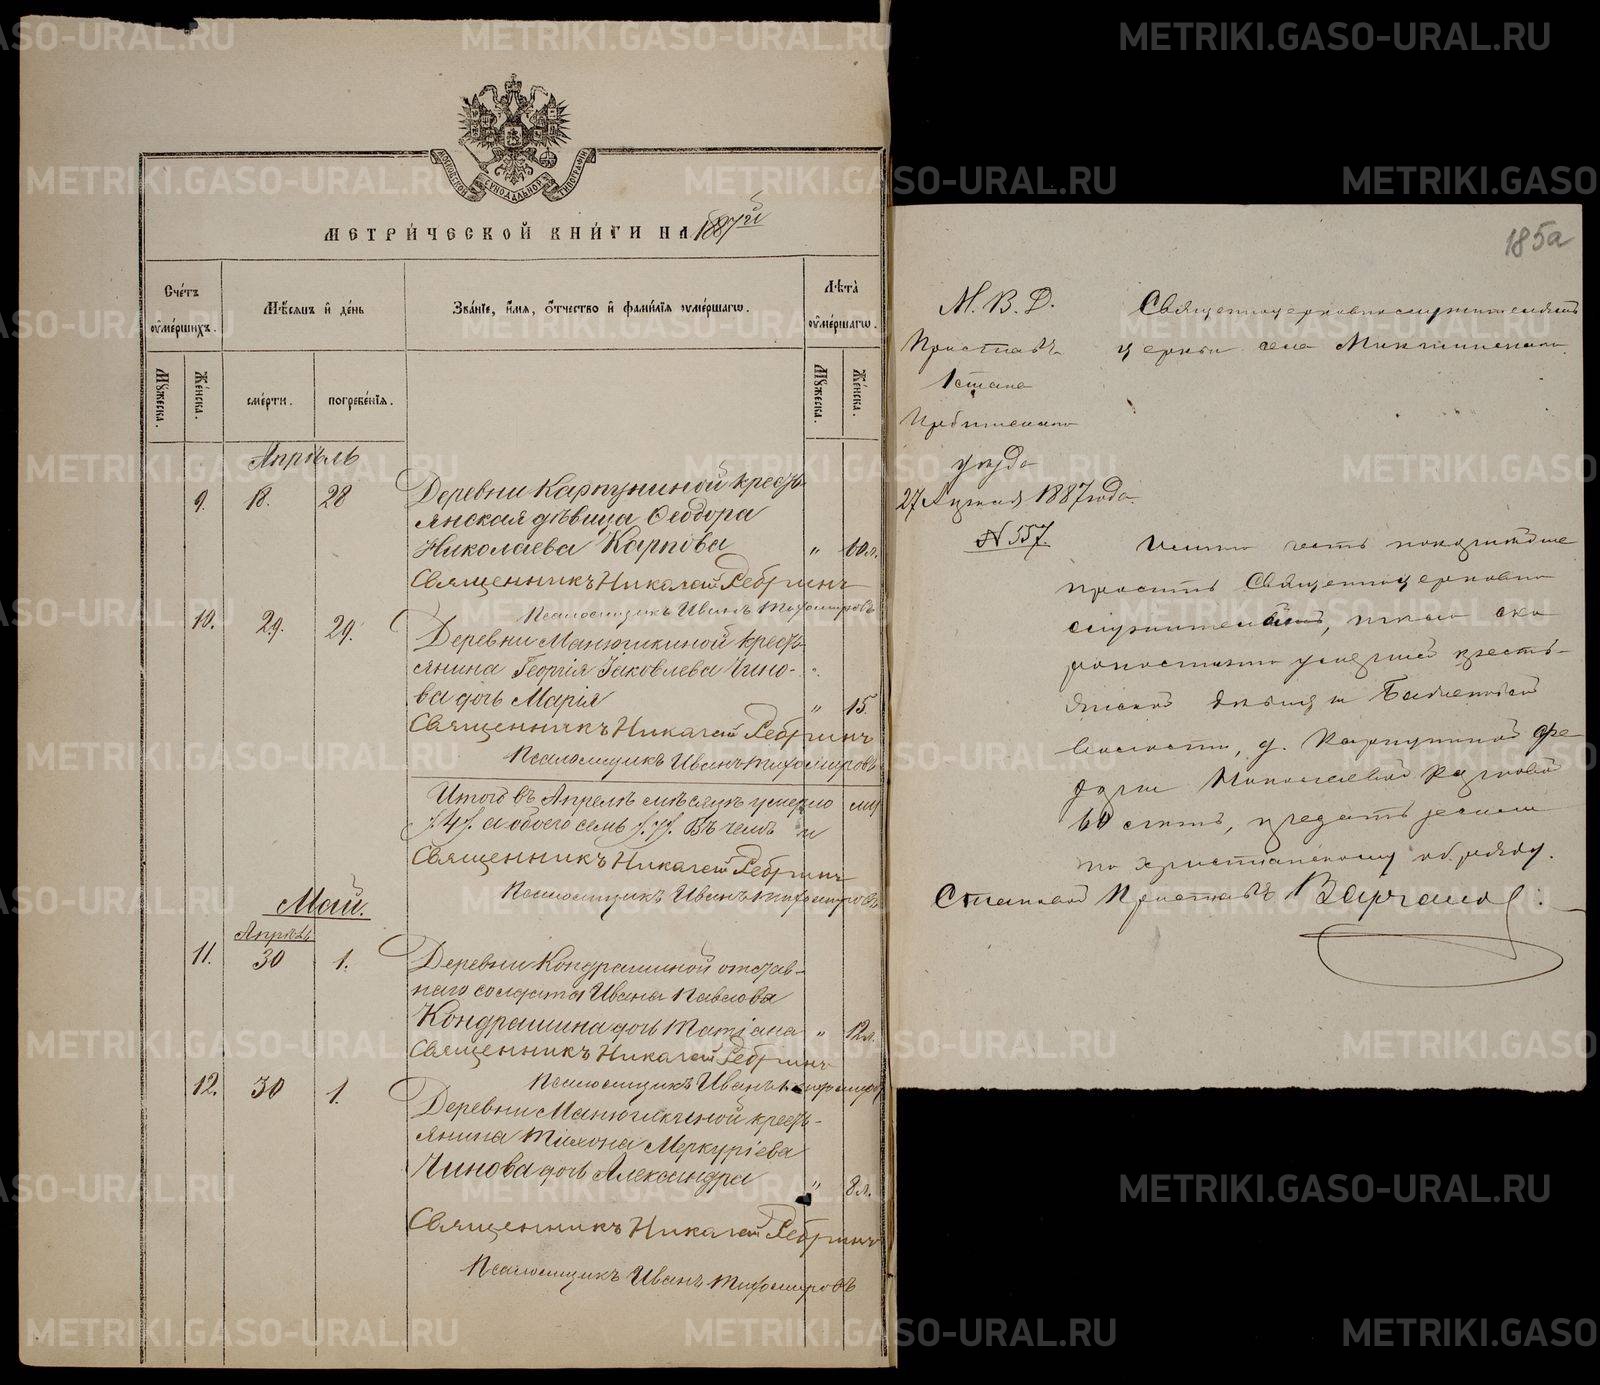 МОСКОВСКОЙ СУНОДАЛЬНОЙ ТИПОГРАФІИ
МЕТРИ́ЧЕСКОЙ КНИ́ГИ НА 1887й
Сче́тъ ѹ҆ме́ршихъ.
Мѣ́сяцъ и҆ де́нь
Зва́нїе, и҆́мѧ, ѻ҆́тчество и҆ фами́лїѧ ѹ҆ме́ршагѡ.
Лѣ́та ѹ҆ме́ршагѡ.
Мꙋ́жеска.
Же́нска.
сме́рти.
погребе́нїѧ.
Мꙋ́жеска.
Же́нска.
Апрѣль
9. 18. 28 Деревни Карпуниной кресть-
янская дѣвица Ѳеодора
Николаева Карпова " 60 л.
Священникъ Николай Ребринъ
Псаломщикъ Иванъ Тихомировъ
10. 29. 29. Деревни Манюшкиной кресть-
янина Георгія Іаковлева Чино-
ва дочь Марія " 15.
Священникъ Николай Ребринъ
Псаломщикъ Иванъ Тихомировъ
Итого въ Апрелѣ мѣсяцѣ умерло
а обоего семь
Священникъ Николай Ребринъ
Псаломщикъ Иванъ Тихомировъ
Май.
Апрѣль
11. 30 1. Деревни Кондрашиной отстав-
наго солдата Ивана Павлова
Кондрашина дочь Татіана " 12 л.
Священникъ Николай Ребринъ
Псаломщикъ Иванъ Тихомировъ
12. 30 1. Деревни Манюшкиной кресть-
янина Тихона Меркуріева
Чинова дочь Александра " 8 л.
Священникъ Николай Ребринъ
Псаломщикъ Иванъ Тихомировъ
185а
М. В. Д.
Приставъ
1 стана
Ирбитскаго
уѣзда
27 Апреля 1887 года
N 557.
Священноцерковнослужителямъ
церкви села
Имѣю честь покорнѣйше
просить Священноцерковно
служителей, тѣло ско
ропостижно умершей кресть-
янской дѣвицы
волости, д. Карпуниной Фе-
доры Николаевой Карповой
60 лѣтъ, предать землѣ
по христіанскому обряду.
Становой Приставъ
METRIKI.GASO-URAL.RU